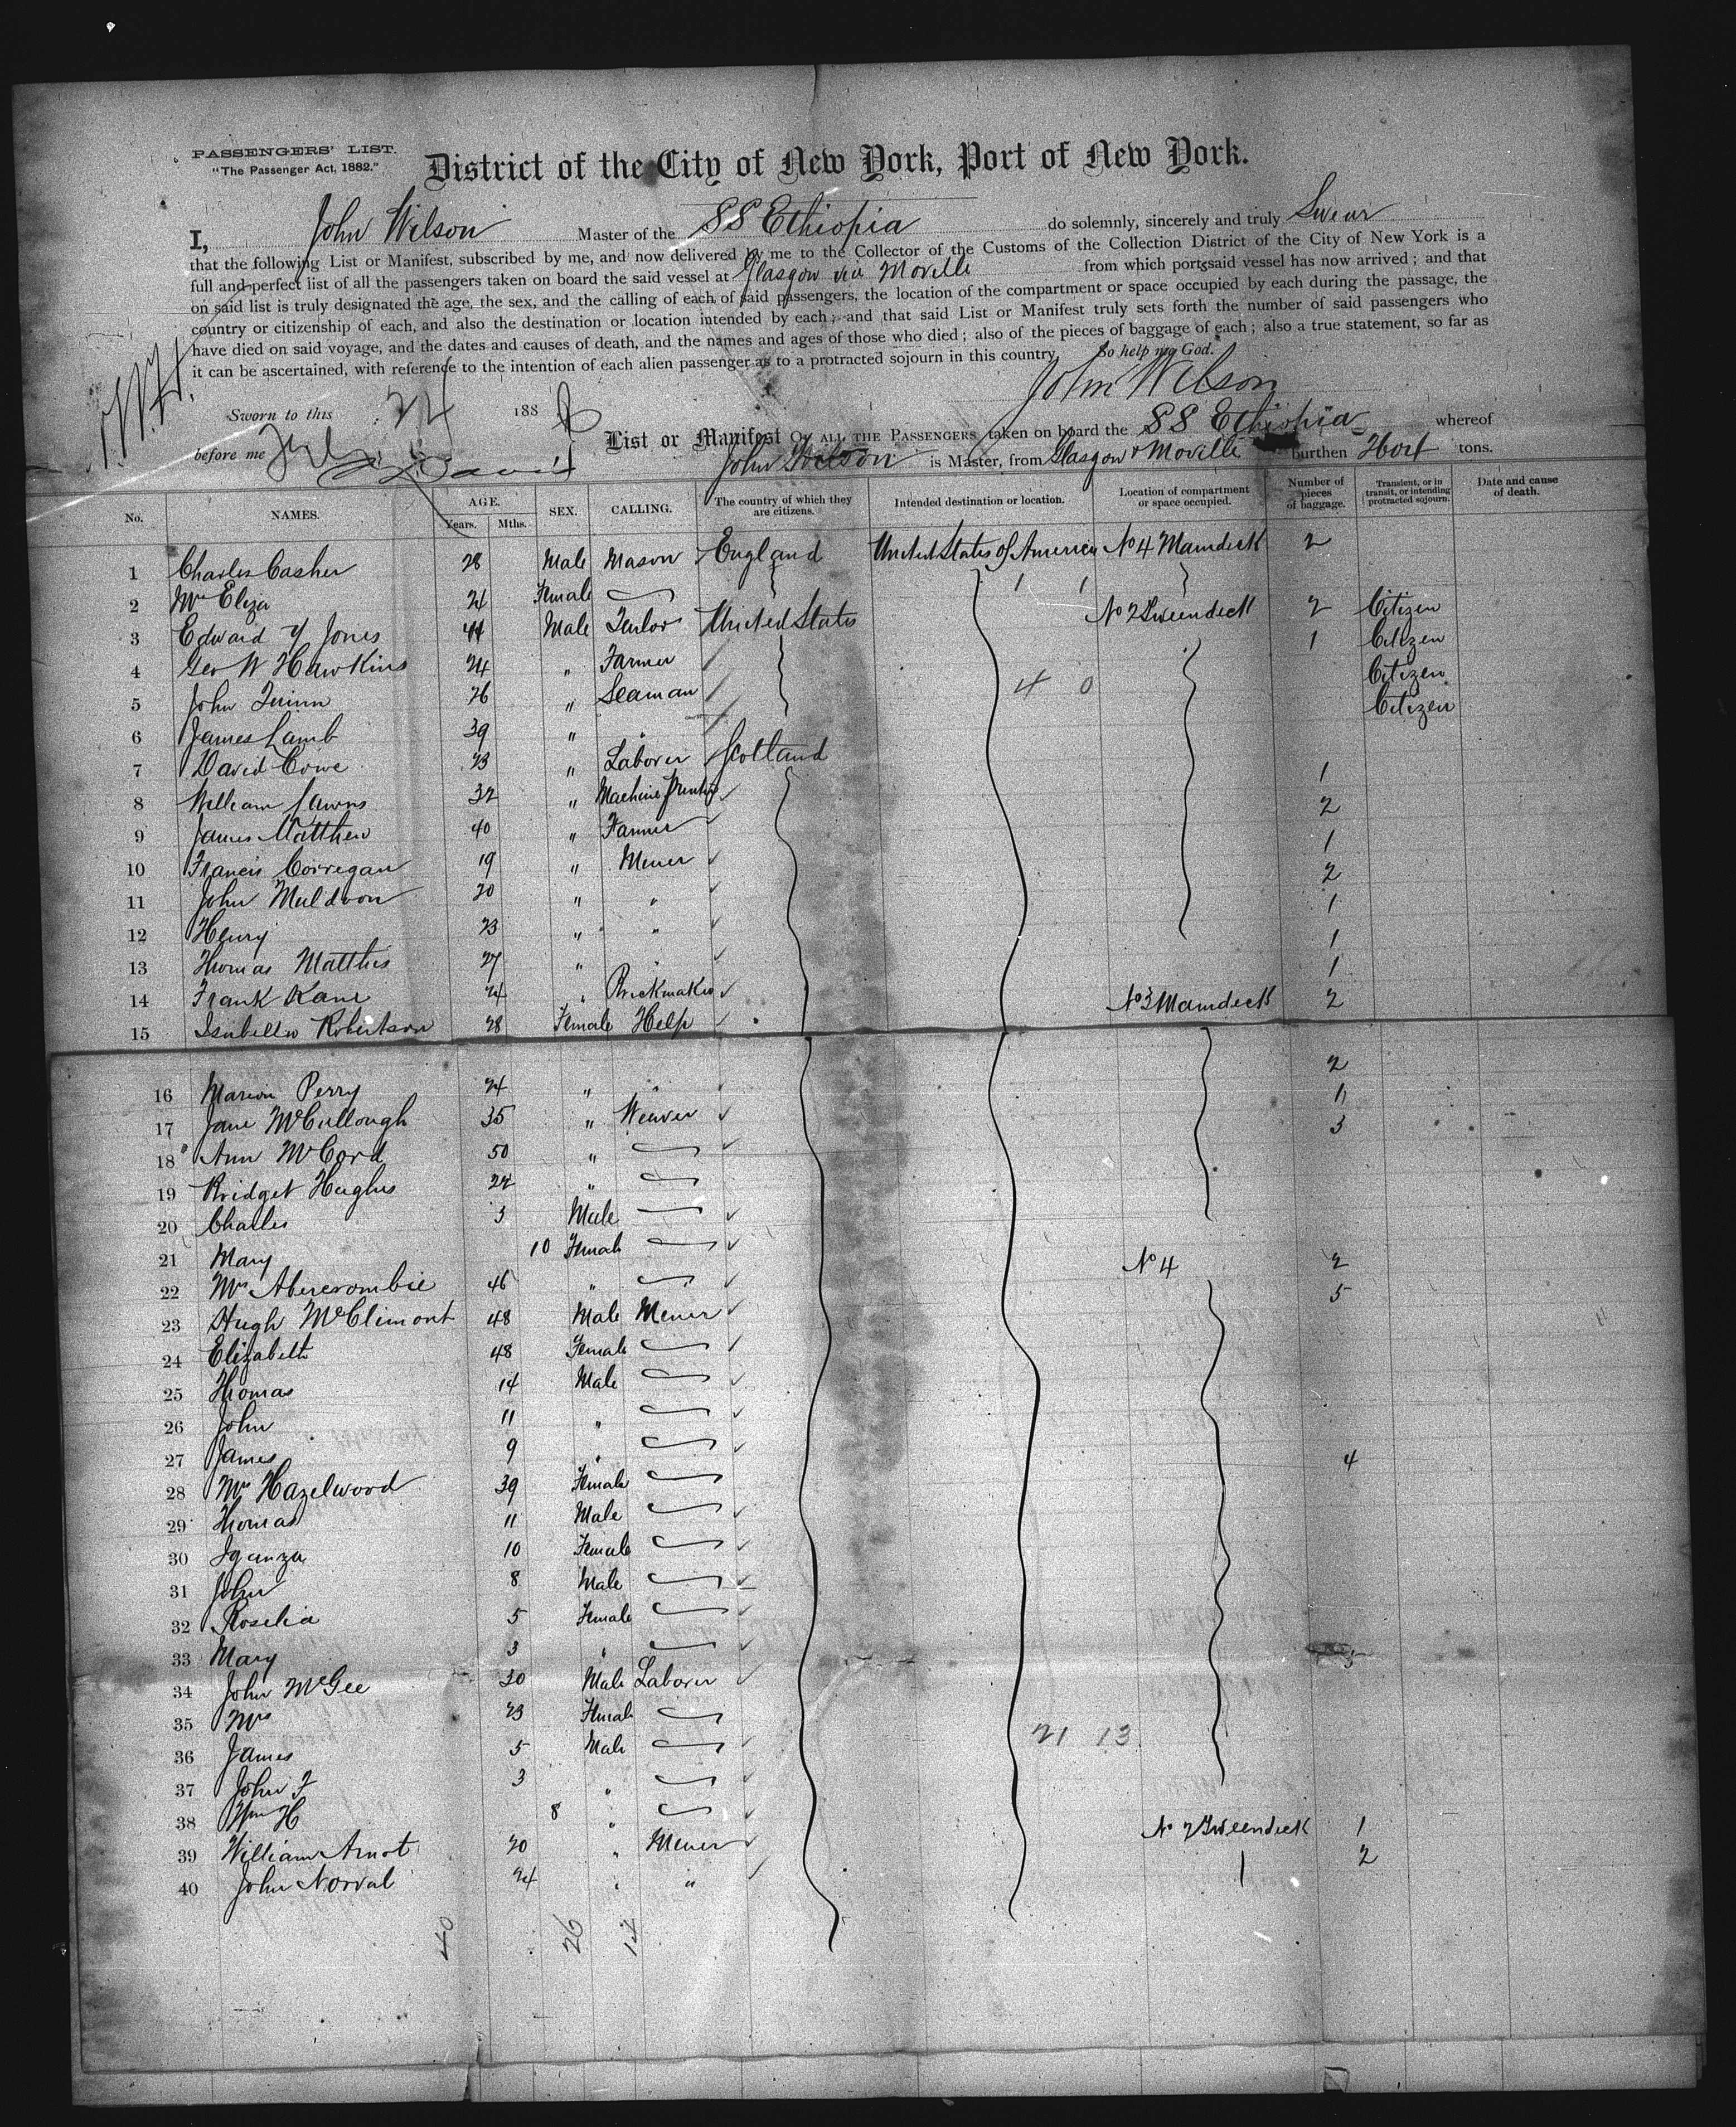 PASSENGERS' LIST.
"The Passenger Act, 1882."
District of the City of New York, Port of New York.
I, John Wilson Master of the SS Ethiopia do solemnly, sincerely and truly Swear
that the following List or Manifest, subscribed by me, and now delivered by me to the Collector of the Customs of the Collection District of the City of New York is a
full and perfect list of all the passengers taken on board the said vessel at Glasgow via Moville from which port said vessel has now arrived; and that
on said list is truly designated the age, the sex, and the calling of each of said passengers, the location of the compartment or space occupied by each during the passage, the
country or citizenship of each, and also the destination or location intended by each; and that said List or Manifest truly sets forth the number of said passengers who
have died on said voyage, and the dates and causes of death, and the names and ages of those who died; also of the pieces of baggage of each; also a true statement, so far as
it can be ascertained, with reference to the intention of each alien passenger as to a protracted sojourn in this country. So help me God.
John Wilson
Sworn to this 24 188
before me
List or Manifest OF ALL THE PASSENGERS taken on board the SS Ethiopia whereof
John Wilson is Master, from Glasgow & Moville burthen tons.
No. NAMES. AGE. Years. Mths. SEX. CALLING. The country of which they are citizens. Intended destination or location. Location of compartment or space occupied. Number of pieces of baggage. Transient, or in transit, or intending protracted sojourn. Date and cause of death.
1 Charles Casher 28 Male Mason England United States of America No 4 Maindeck 2
2 Mrs Eliza 24 Female 1 1
3 Edward Y Jones 44 Male United States No 2 Tweendeck 2 Citizen
4 Geo W Hawkins 24 " Farmer 1 Citizen
5 John Quinn 26 " Seaman 4 0 Citizen
6 James Lamb 39 " " Citizen
7 David Cowe 23 " Laborer Scotland 1
8 William 32 " Machine Printer 2
9 James Matthew 40 " Farmer 1
10 Francis Corregan 19 " Miner 2
11 John Muldoon 20 " " 1
12 Henry 23 " " 1
13 Thomas Matthis 27 " " 1
14 Frank Kane 24 " Brickmaker 2
15 Isabella Robertson 28 Female Help No 3 Maindeck
16 Marion Perry 24 " " 2
17 Jane McCullough 35 " Weaver 1
18 Ann McCord 50 " 3
19 Bridget Hughes 24 "
20 Charles 3 Male
21 Mary 10 Female
22 Mrs Abercrombie 46 " No 4 2
23 Hugh McClimont 48 Male Miner 5
24 Elizabeth 48 Female
25 Thomas 14 Male
26 John 11 "
27 James 9 "
28 Mrs Hazelwood 39 Female 4
29 Thomas 11 Male
30 Iganza 10 Female
31 John 8 Male
32 Roselia 5 Female
33 Mary 3 "
34 John McGee 30 Male Laborer 5
35 Mrs 23 Female
36 James 5 Male 21 13
37 John F 3 "
38 Wm H 8 "
39 William Arnot 20 " Miner No 2 Tweendeck 1
40 John Norval 24 " " 2
40 26 14